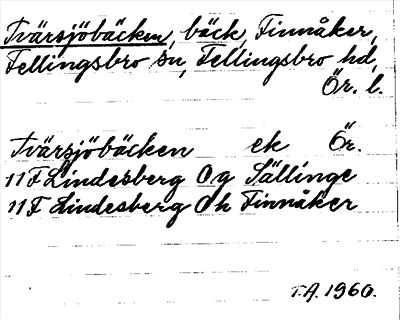 Tvärsjöbäcken, bäck, Finnåker,
Fellingsbro sn, Fellingsbro hd,
Ör. l.
Tvärsjöbäcken ek Ör.
11F Lindesberg 0g Sällinge
11F Lindesberg 0h Finnåker
T.A. 1960.